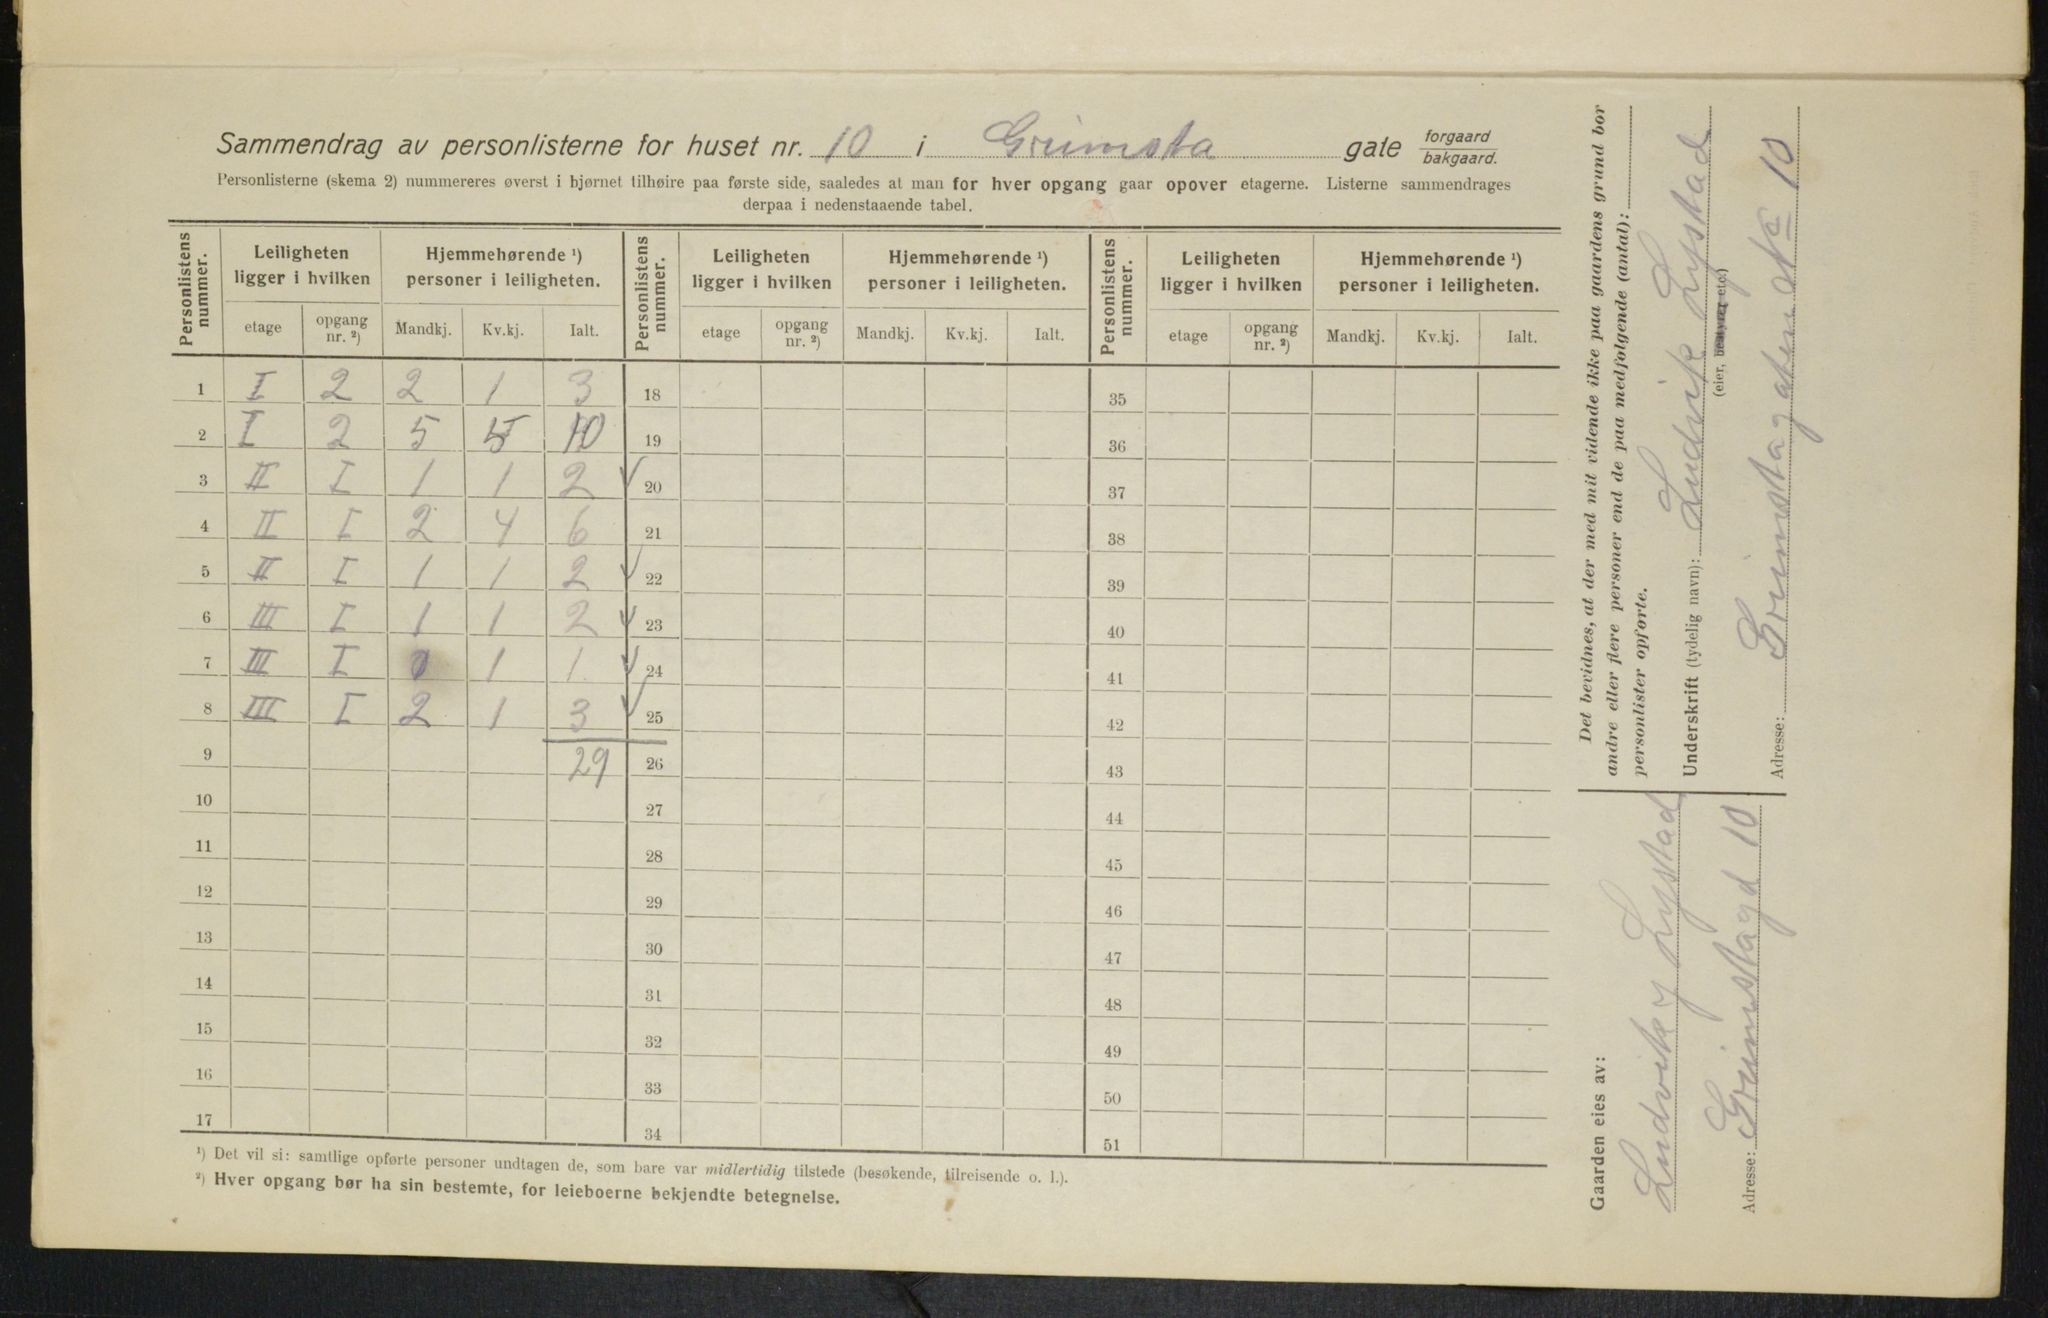 Sammendrag av personlisterne for huset nr. 10 i Grimsta gate forgaard bakgaard.
Personlisterne (skema 2) nummereres øverst i hjørnet tilhøire paa første side, saaledes at man for hver opgang gaar opover etagerne. Listerne sammendrages
derpaa i nedenstaaende tabel.
Personlistens nummer. Leiligheten ligger i hvilken Hjemmehørende ¹) personer i leiligheten. Personlistens nummer. Leiligheten ligger i hvilken Hjemmehørende ¹) personer i leiligheten. Personlistens nummer. Leiligheten ligger i hvilken Hjemmehørende ¹) personer i leiligheten.
etage opgang nr. ²) Mandkj. Kv.kj. Ialt. etage opgang nr. ²) Mandkj. Kv.kj. Ialt. etage opgang nr. ²) Mandkj. Kv.kj. Ialt.
1 I 2 2 1 3 18 35
2 I 2 5 5 10 19 36
3 II I 1 1 2 ✓ 20 37
4 II I 2 4 6 21 38
5 II I 1 1 2 ✓ 22 39
6 III I 1 1 2 ✓ 23 40
7 III I 0 1 1 ✓ 24 41
8 III I 2 1 3 ✓ 25 42
9 29 26 43
10 27 44
11 28 45
12 29 46
13 30 47
14 31 48
15 32 49
16 33 50
17 34 51
¹) Det vil si: samtlige opførte personer undtagen de, som bare var midlertidig tilstede (besøkende, tilreisende o. l.).
²) Hver opgang bør ha sin bestemte, for leieboerne bekjendte betegnelse.
Det bevidnes, at der med mit vidende ikke paa gaardens grund bor
andre eller flere personer end de paa medfølgende (antal):
personlister opførte.
Underskrift (tydelig navn): Ludvik Lystad
(eier, bestyrer etc.)
Adresse: Grimstagaten No 10
Gaarden eies av:
Ludvik Lystad
Adresse: Grimstagd 10